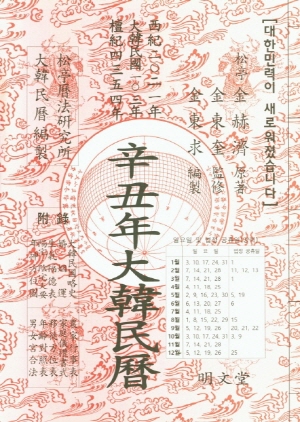 [대한민력이 새로워졌습니다]
松亭 金赫濟 原著
金東奎 監修
金東求 編製
西紀二○二一年
大韓民國一○三年
檀紀四三五四年
松亭曆法研究所
大韓民曆編製
辛丑年大韓民曆
附錄
일요일 및 법정 공휴일
일요일 법정 공휴일
1월 3, 10, 17, 24, 31 1
2월 7, 14, 21, 28 11, 12, 13
3월 7, 14, 21, 28 1
4월 4, 11, 18, 25
5월 2, 9, 16, 23, 30 5, 19
6월 6, 13, 20, 27
7월 4, 11, 18, 25
8월 1, 8, 15, 22, 29 15
9월 5, 12, 19, 26 20, 21, 22
10월 3, 10, 17, 24, 31 3, 9
11월 7, 14, 21, 28
12월 5, 12, 19, 26 25
明文堂